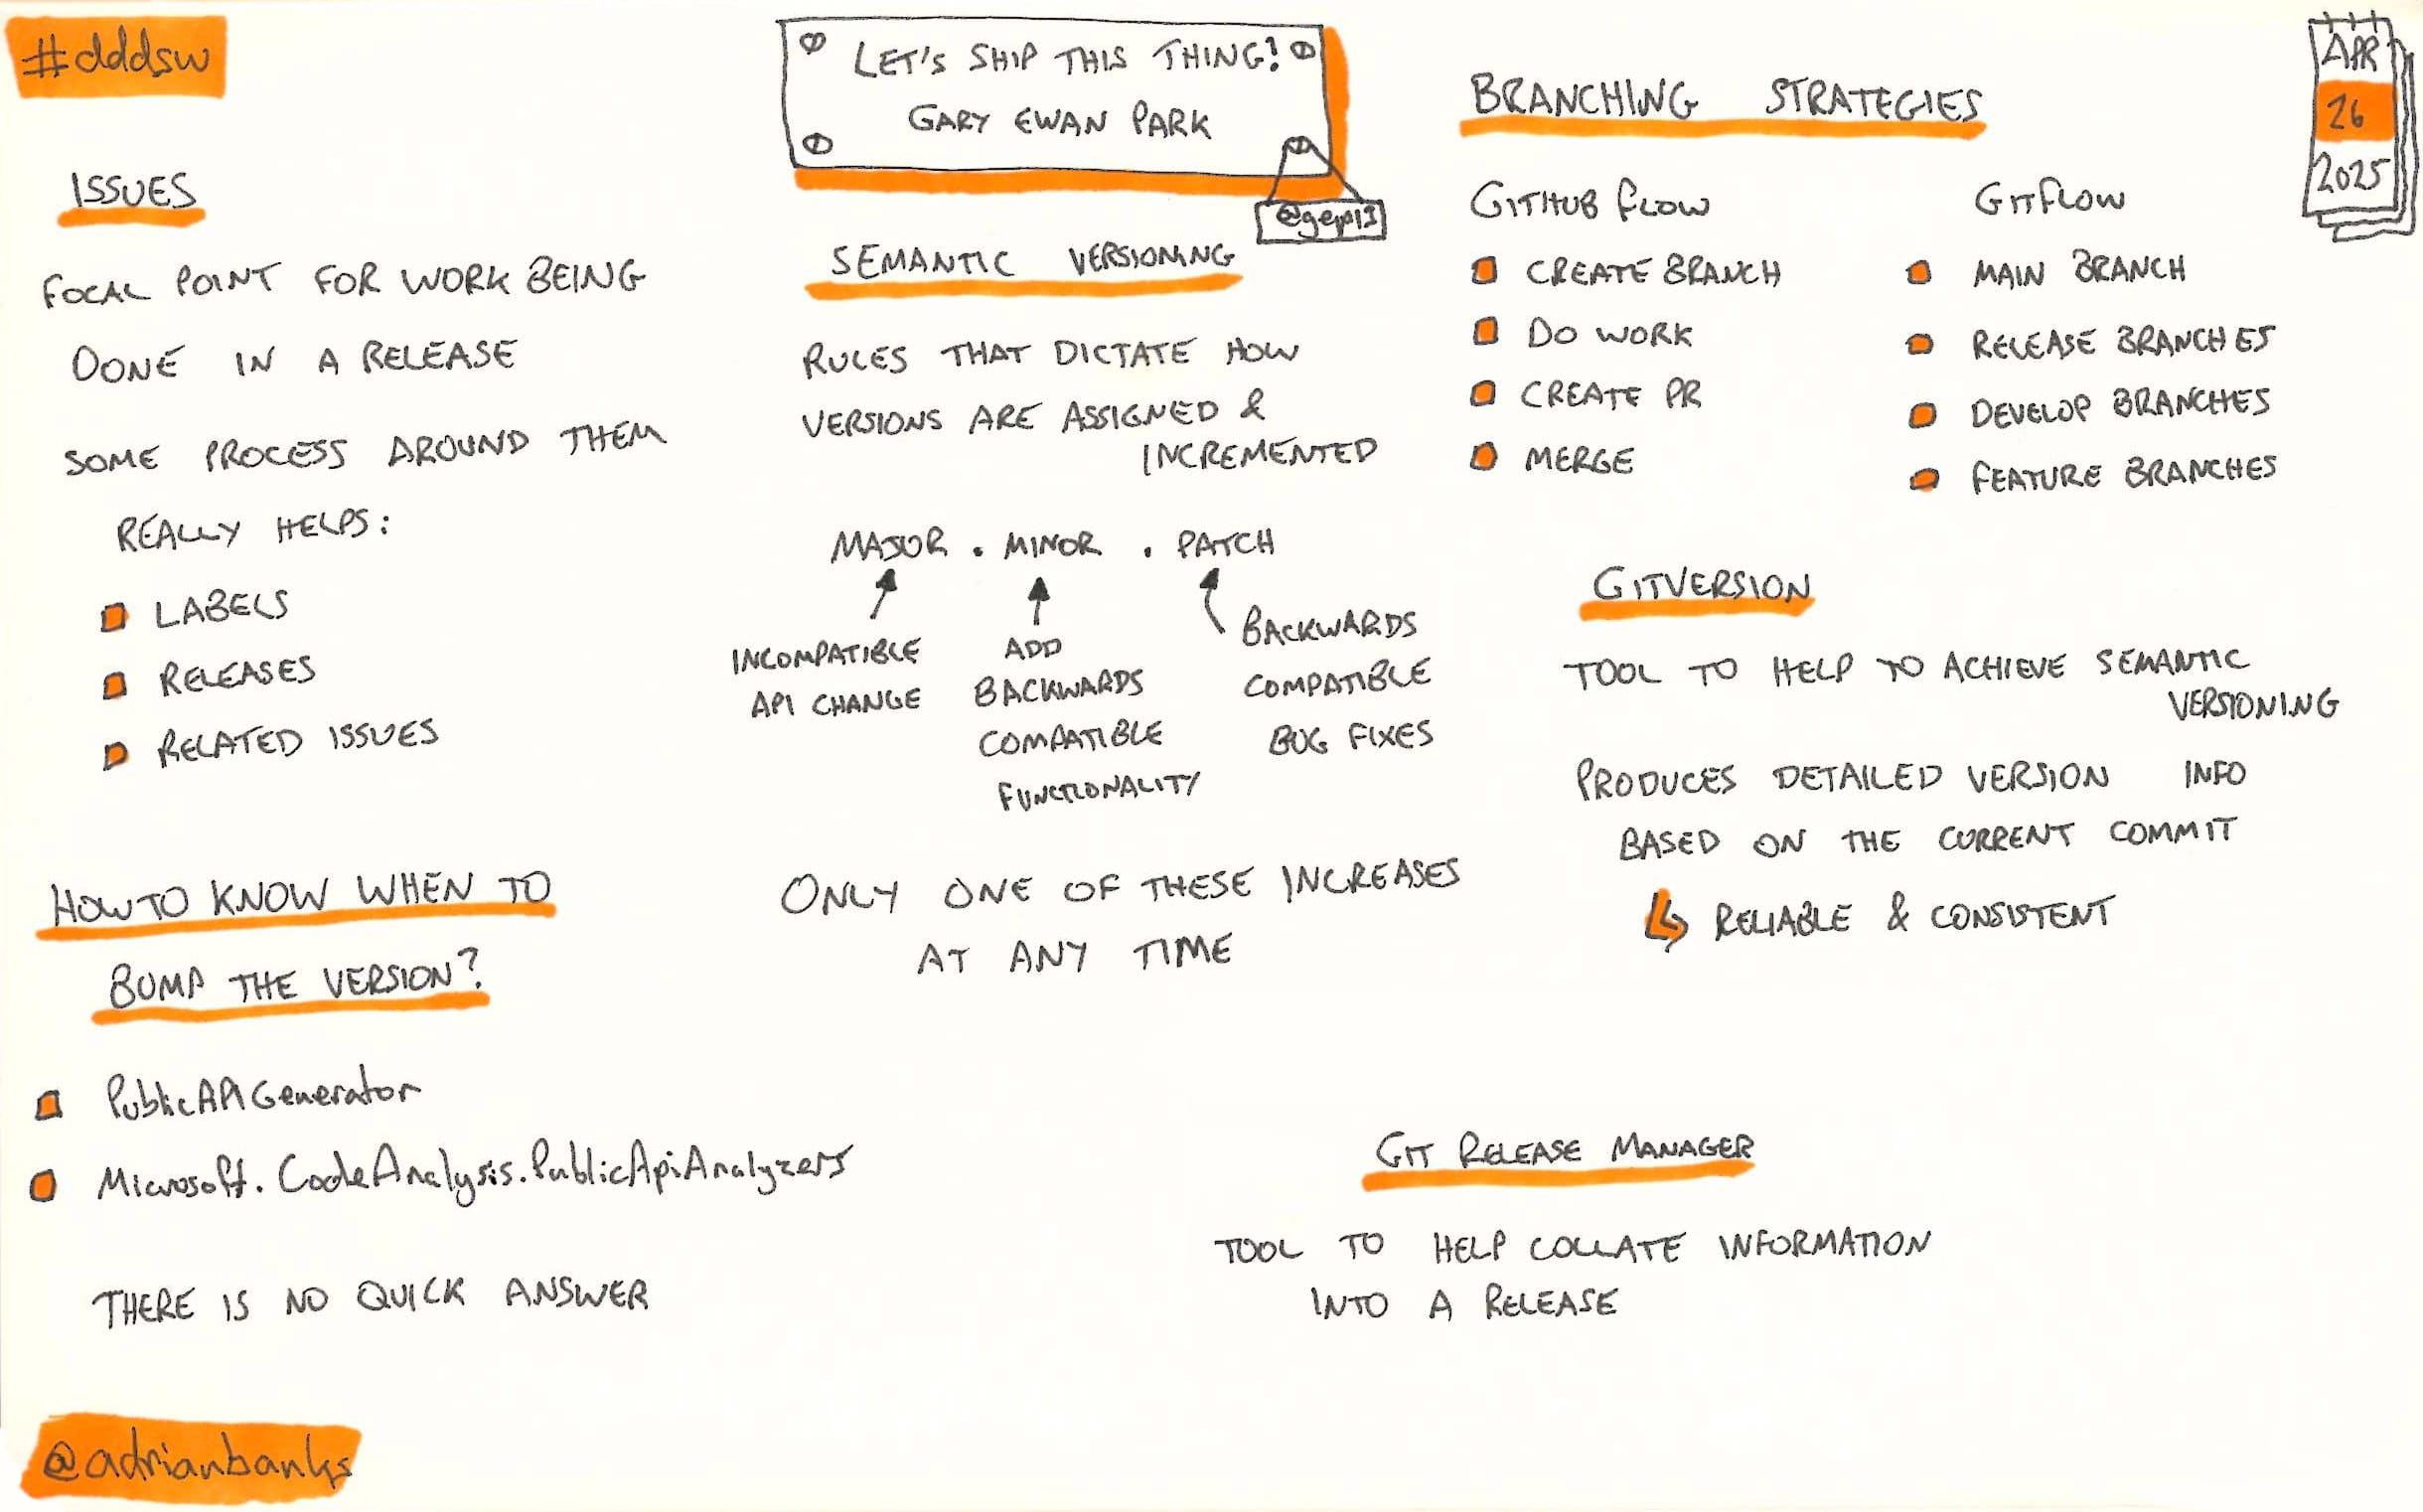 #dddsw
LET'S SHIP THIS THING!
GARY EWAN PARK
@gep13
APR
26
2025
ISSUES
FOCAL POINT FOR WORK BEING
DONE IN A RELEASE
SOME PROCESS AROUND THEM
REALLY HELPS:
LABELS
RELEASES
RELATED ISSUES
HOW TO KNOW WHEN TO
BUMP THE VERSION?
PublicAPIGenerator
Microsoft.CodeAnalysis.PublicApiAnalyzers
THERE IS NO QUICK ANSWER
SEMANTIC VERSIONING
RULES THAT DICTATE HOW
VERSIONS ARE ASSIGNED &
INCREMENTED
MAJOR . MINOR . PATCH
INCOMPATIBLE
API CHANGE
ADD
BACKWARDS
COMPATIBLE
FUNCTIONALITY
BACKWARDS
COMPATIBLE
BUG FIXES
ONLY ONE OF THESE INCREASES
AT ANY TIME
BRANCHING STRATEGIES
GITHUB FLOW
CREATE BRANCH
DO WORK
CREATE PR
MERGE
GITFLOW
MAIN BRANCH
RELEASE BRANCHES
DEVELOP BRANCHES
FEATURE BRANCHES
GITVERSION
TOOL TO HELP TO ACHIEVE SEMANTIC
VERSIONING
PRODUCES DETAILED VERSION INFO
BASED ON THE CURRENT COMMIT
RELIABLE & CONSISTENT
GIT RELEASE MANAGER
TOOL TO HELP COLLATE INFORMATION
INTO A RELEASE
@adrianbanks